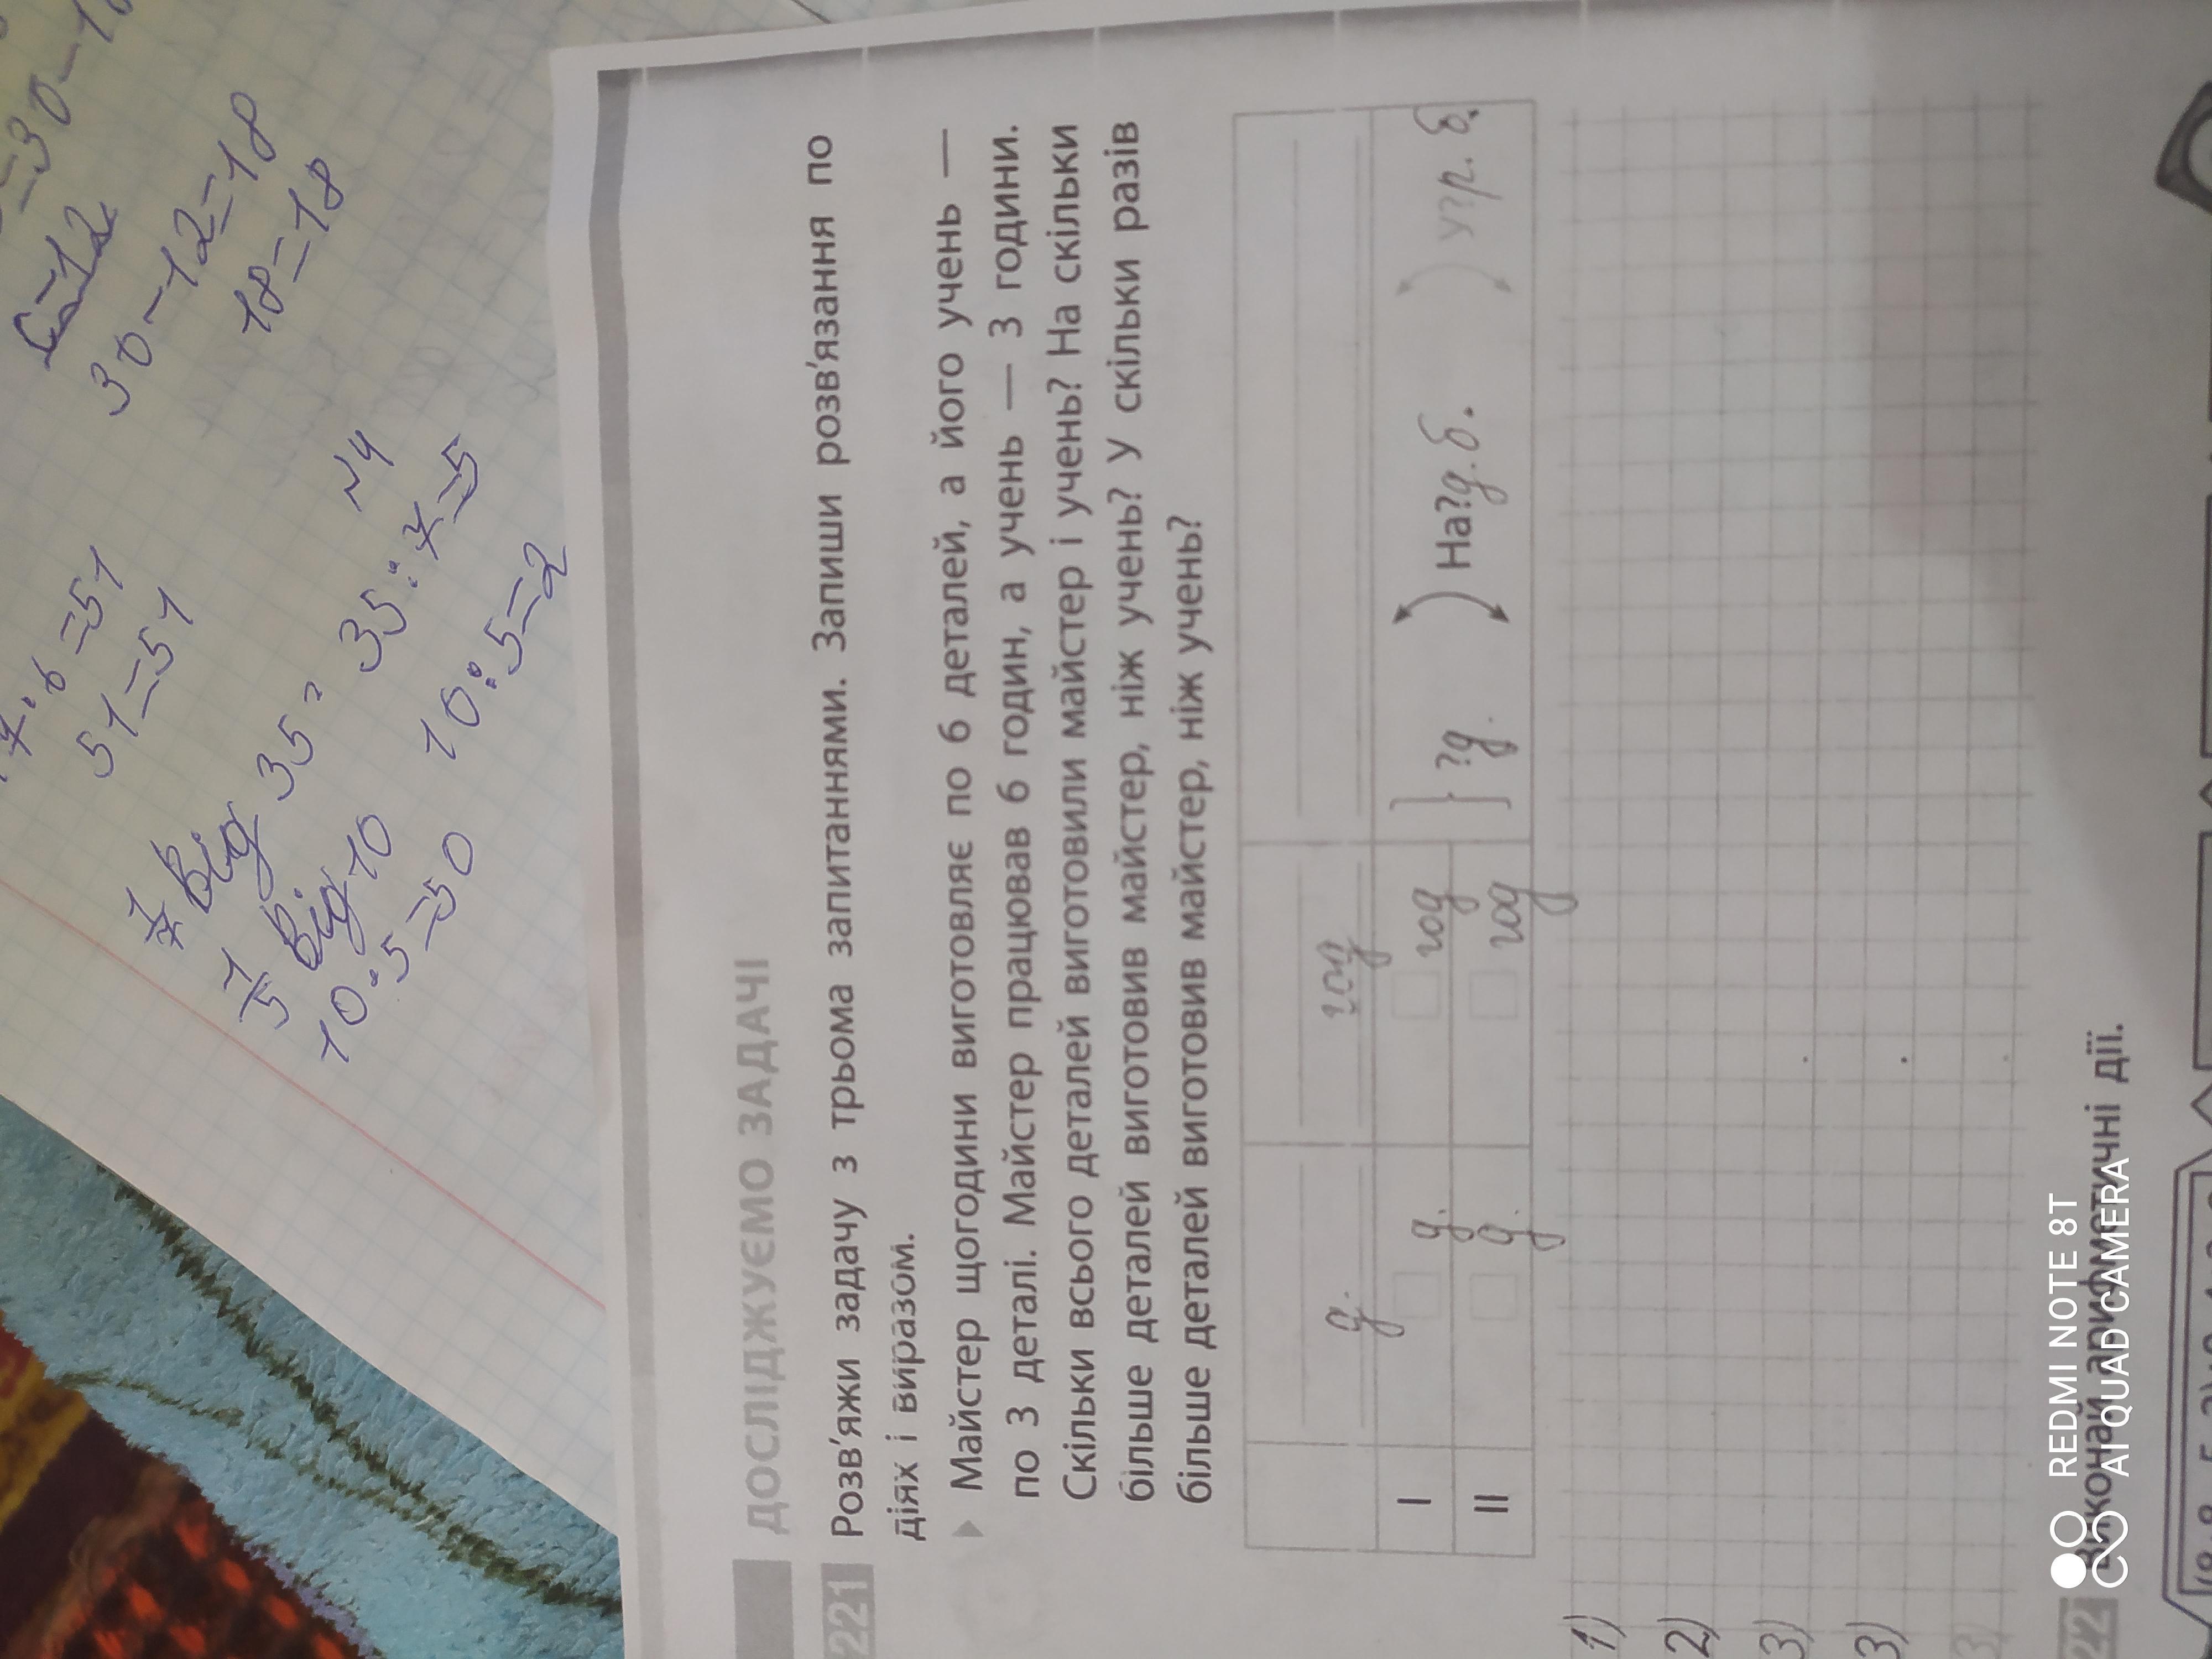 =30-1
30-12=18
18=18
51=51
1/7 від 35= 35:7=5
№4
1/5 від 10 10:5=2
10·5=50
ДОСЛІДЖУЄМО ЗАДАЧІ
221 Розв'яжи задачу з трьома запитаннями. Запиши розв'язання по
діях і виразом.
Майстер щогодини виготовляє по 6 деталей, а його учень —
по 3 деталі. Майстер працював 6 годин, а учень — 3 години.
Скільки всього деталей виготовили майстер і учень? На скільки
більше деталей виготовив майстер, ніж учень? У скільки разів
більше деталей виготовив майстер, ніж учень?
д. год
І д. год } ?д. На?д.б. У?р. б.
ІІ д. год
1)
2)
3)
3)
3)
22 Виконай арифметичні дії.
REDMI NOTE 8T
AI QUAD CAMERA